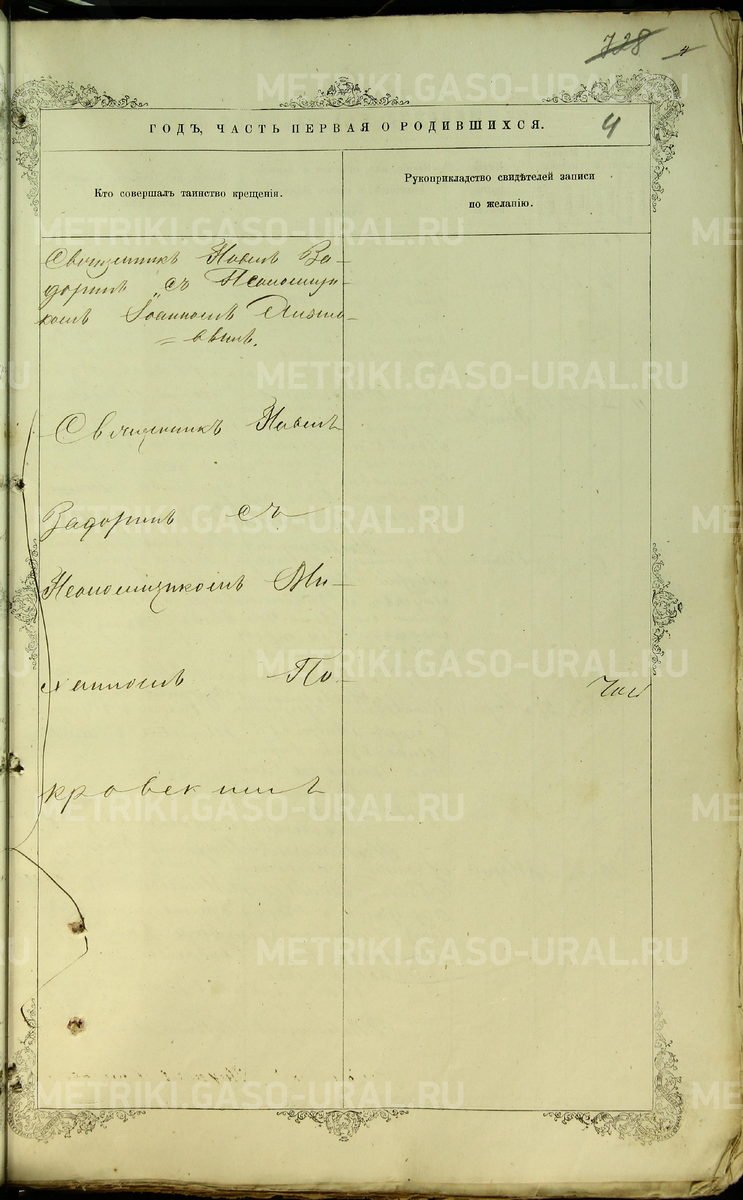 728 4
ГОДЪ, ЧАСТЬ ПЕРВАЯ О РОДИВШИХСЯ.
4
Кто совершалъ таинство крещенія.
Рукоприкладство свидѣтелей записи
по желанію.
Священникъ Павелъ За-
доринъ съ Псаломщи-
комъ Іоанномъ
Священникъ Павелъ
Задоринъ съ
Псаломщикомъ Ми-
хаиломъ По-
кровскимъ
METRIKI.GASO-URAL.RU